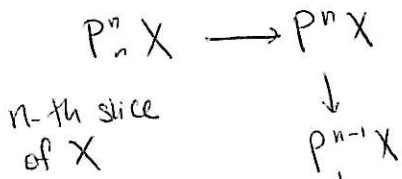 P^n_n X → P^n X
↓
n-th slice
of X
P^{n-1} X